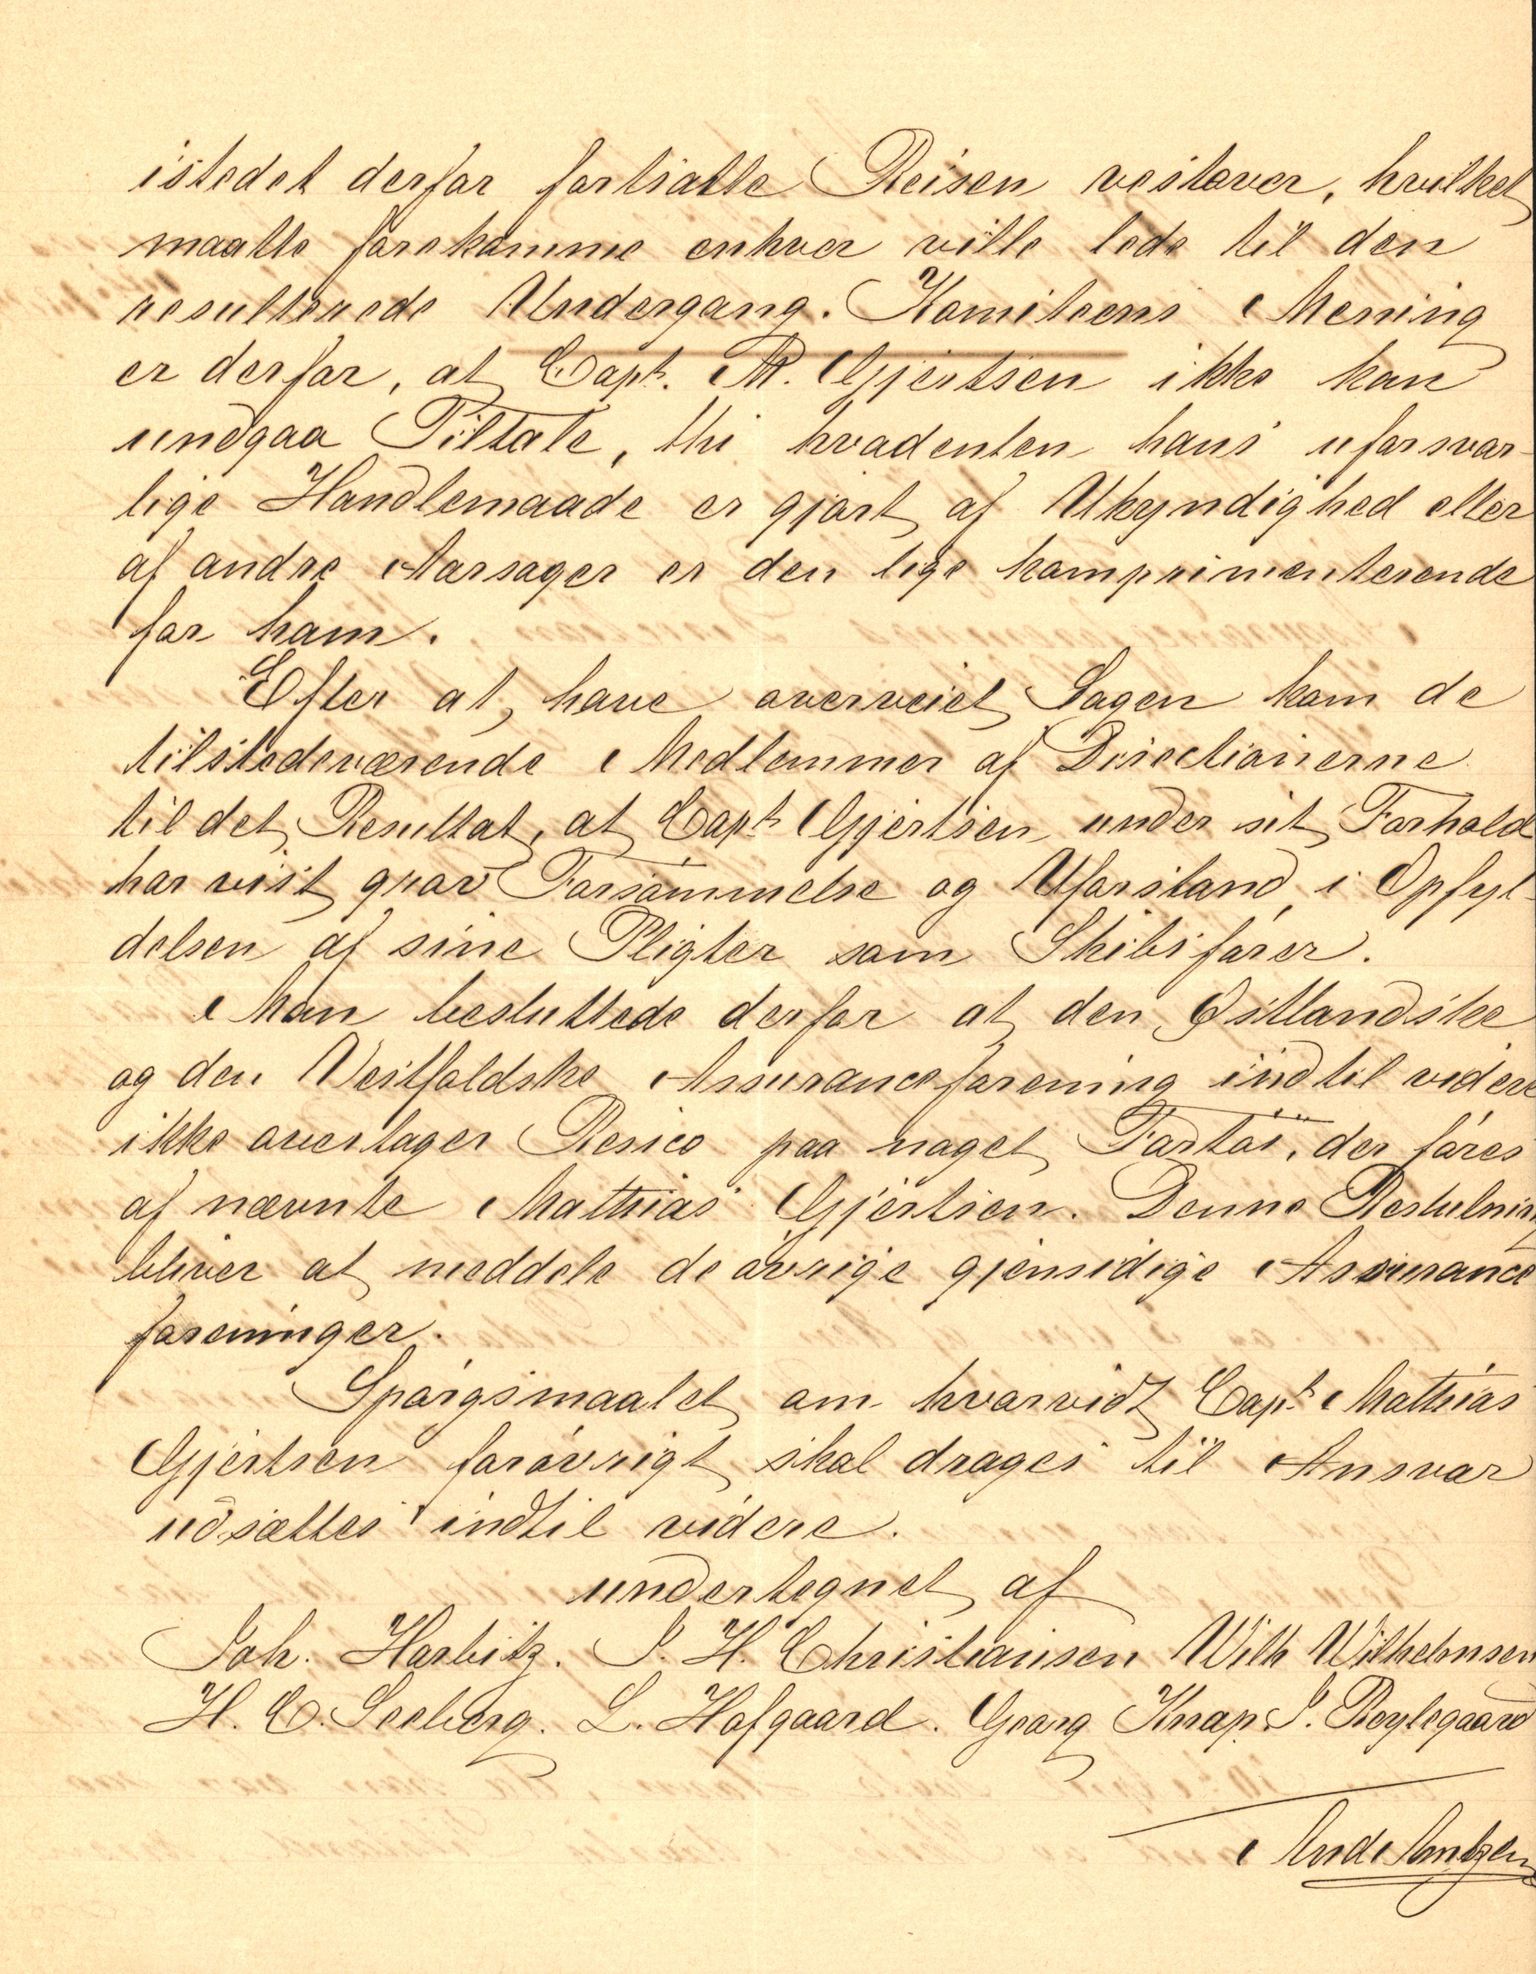 istedet derfor fortsatte Reisen vestover, hvilket
maatte forekomme enhver ville lede til den
resulterede Undergang. Komiteens Mening
er derfor, at Capt. M. Gjertsen ikke kan
undgaa Tiltale, thi hvadenten hans uforsvar-
lige Handlemaade er gjort af Ukyndighed eller
af andre Aarsager er den lige komprimenterende
for ham.
Efter at have overveiet Sagen kom de
tilstedeværende Medlemmer af Directionerne
til det Resultat, at Capt Gjertsen under sit Forhold
har vist grov Forsømmelse og Uforstand i Opfyl-
delsen af sine Pligter som Skibsfører.
Man besluttede derfor at den Østlandske
og den Vestfoldske Assuranceforening indtil videre
ikke overtager Resico paa noget Fartøi, der føres
af nævnte Mathias Gjertsen. Denne Beslutning
bliver at meddele de øvrige gjensidige Assurance
foreninger.
Spørgsmaalet om hvorvidt Capt. Mathias
Gjertsen forøvrigt skal drages til Ansvar
udsættes indtil videre.
undertegnet af
Joh. Harbitz. S. H. Christiansen Wilh Wilhelmsen
H. C. Seeberg. L. Hofgaard. Georg Knap. J. Røylegaard
And. Arntzen